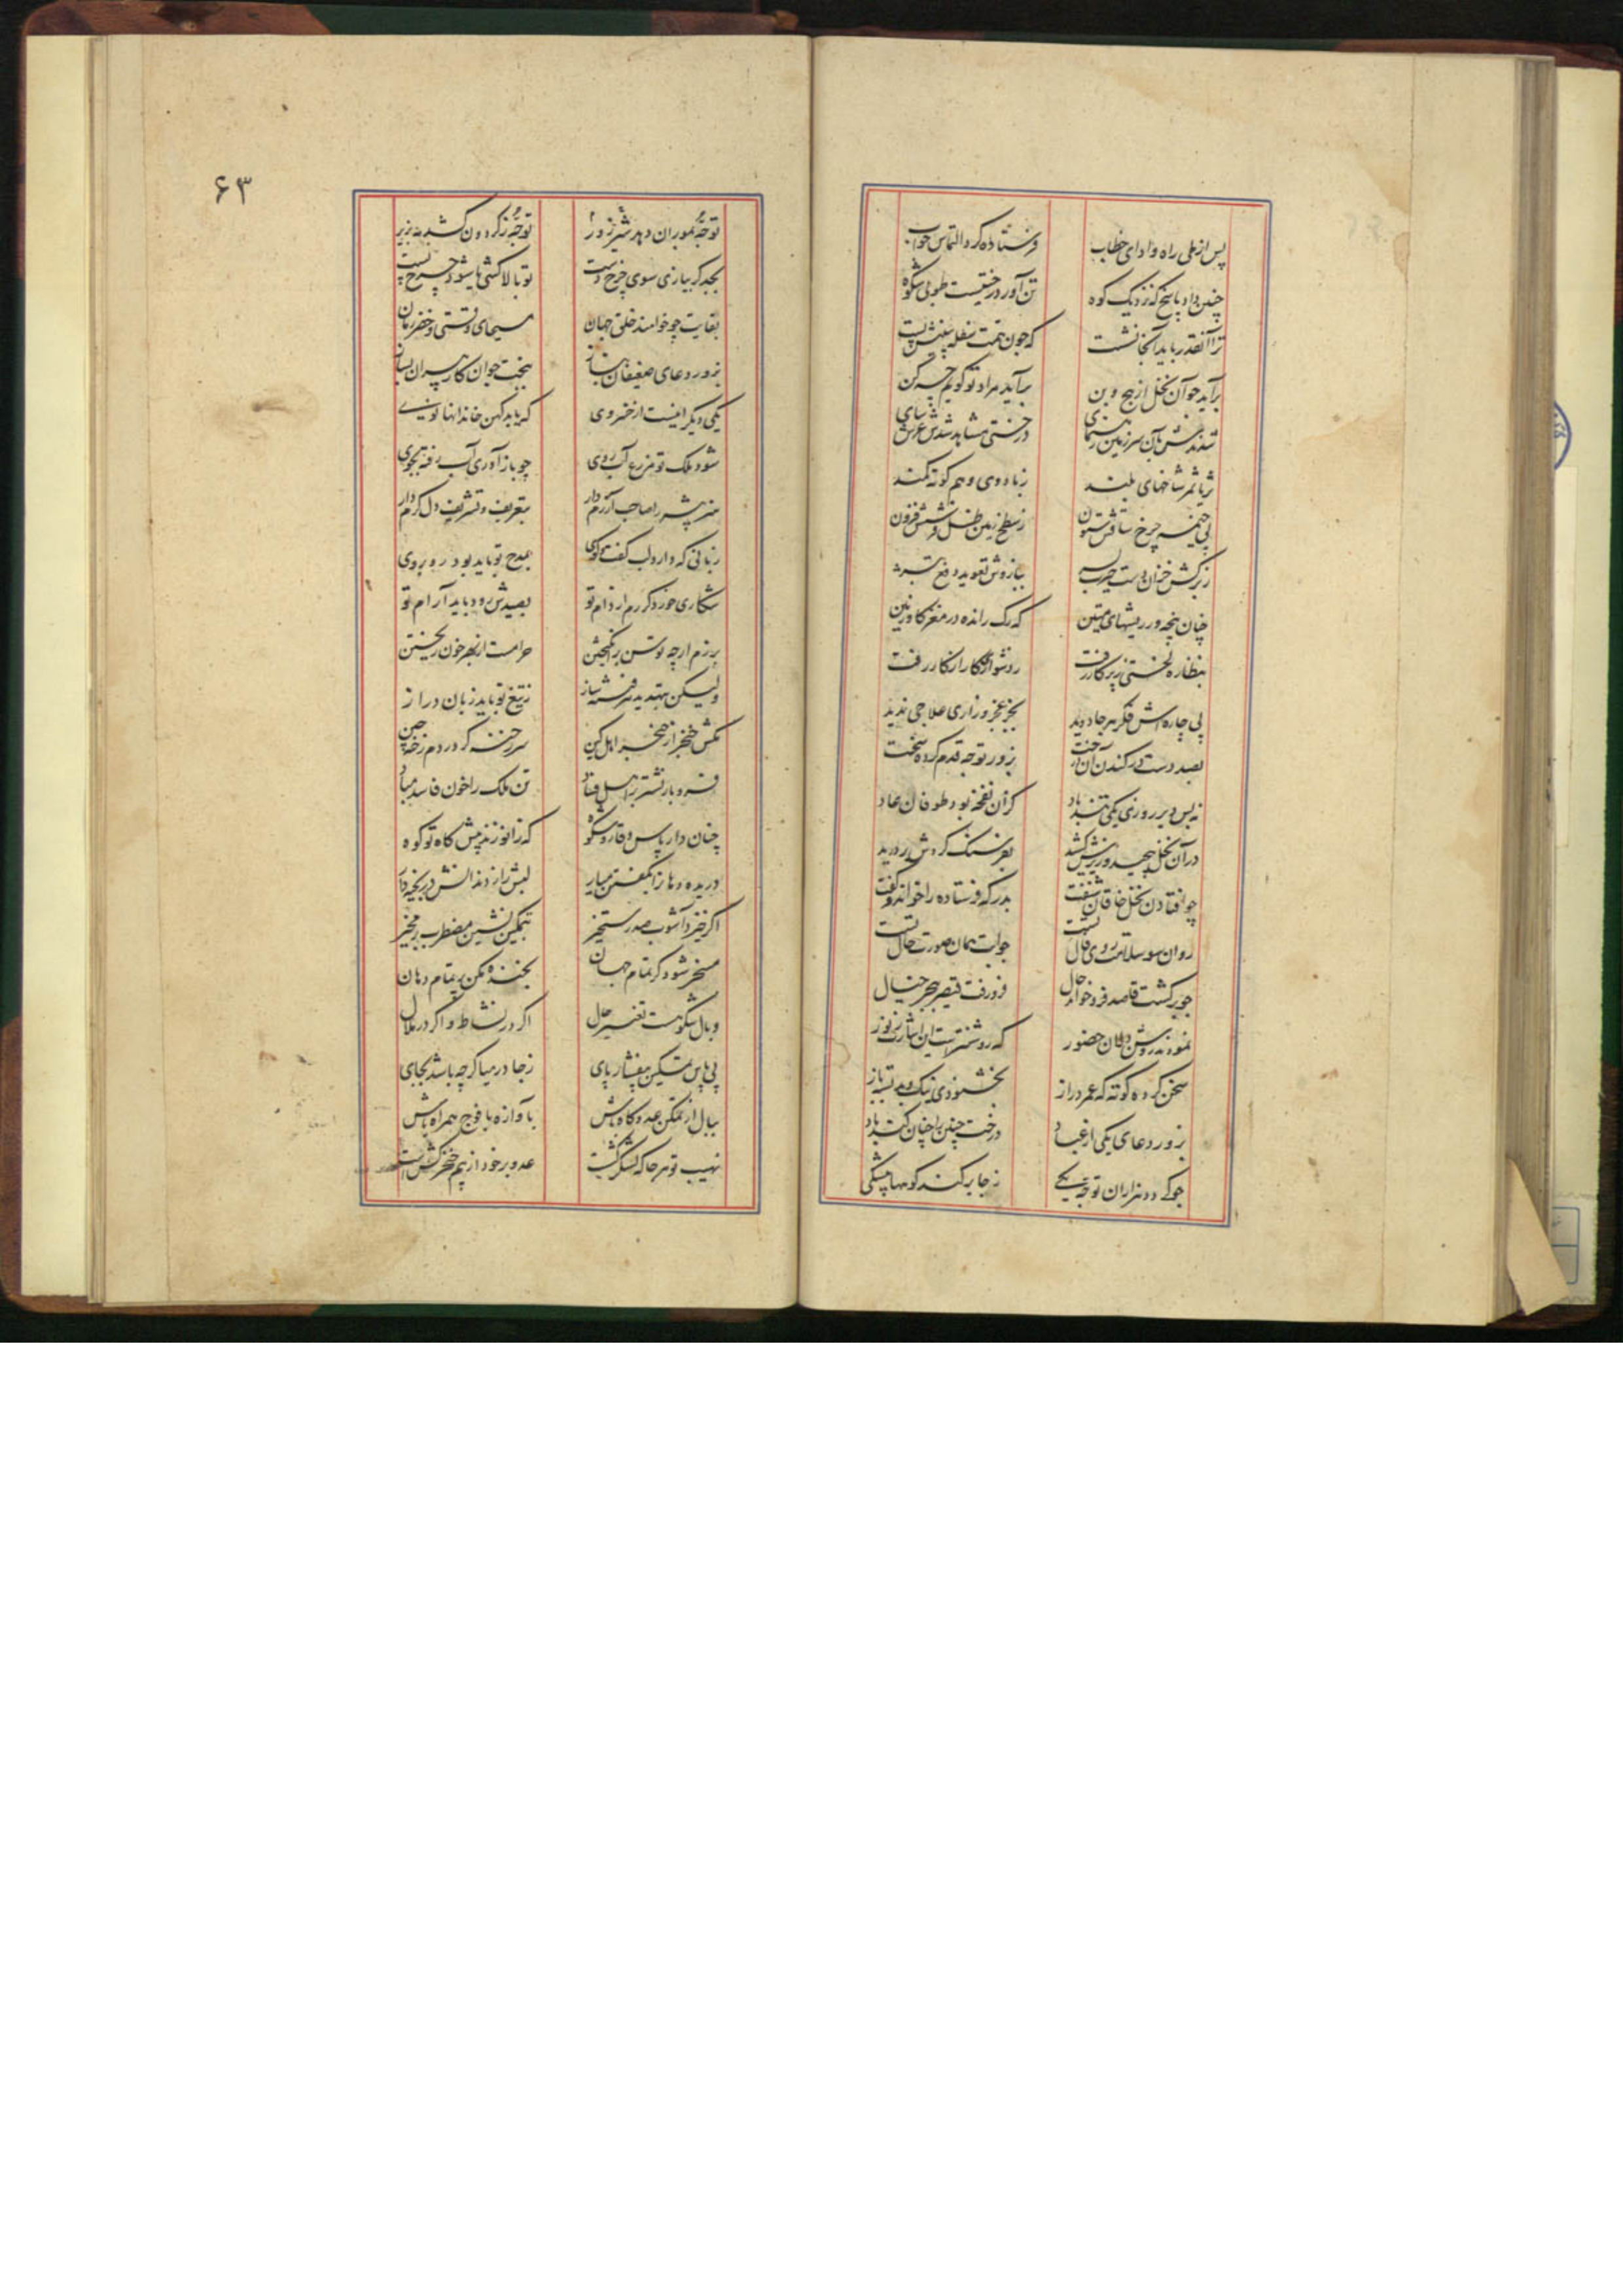 پس از طی راه و ادای خطاب فرستاده کرد التماس جواب
چنین داد پاسخ که نزدیک کوه تن آور درختیست طوبی شکوه
ترا آنقدر باید آنجا نشست که چون همت سفله بینیش پست
برآید چو آن نخل از بیخ و بن برآید مراد تو گویم چه کن
شدندش بآن سرزمین رهنمای درختی مشاهد شدش عرش سای
ثریا ثمر شاخهای بلند زبادوی وهم کوته کمند
پی خیمه چرخ ساقش ستون ز سطح زمین ظل فرشش فزون
ز برگش خزان دست بازوش تعوید دفع تبر
چنان پنجه در ریشهای متین که رگ رانده در مغز گاو زمین
بنظاره لختی ز پرگار رفت ز دشواری کار از کار رفت
پی چاره‌اش فکر هر جا دوید بجز عجز و زاری علاجی ندید
بصد دست در کندن آن درخت بزور توجه قدم کرده سخت
نه بس دیر روزی یکی تند باد کزان نفخهٔ بود طوفان عاد
در آن نخل پیچید و ریشش کشید بفرسنگ گردش
چو افتادن نخل خاقان شنفت بدرگه فرستاده را خواند و گفت
روان شو سلامت روی فال تست جوابت همان صورت حال تست
چو برگشت قاصد فرو خواند حال فرو رفت قیصر ببحر خیال
نمودند روشن‌دلان حضور که روشنتر است این اشارت ز نور
سخن کرده کوته که عمر دراز بخشنودی نیک و بد تست باز
بزور دعای یکی از عباد درخت چنین را چنان کند باد
چو گردد هزاران توجه یکی ز جا برکند کوهها بیشکی
۶۳
توجه بموران دهد شیر زور توجه ز گردون کشد به زیر
بجد گر بیازی سوی چرخ دست تو بالا کشی یا شود چرخ پست
بقایت چو خواهند خلق جهان مسیحای وقتی و خضر زمان
بزور دعای ضعیفان بساز ببخت جوان کار پیران بساز
یکی دیگر اینست از خسروی که باید کهن خاندانها نوی
شود ملک تو مزرع آب روی چو باز آوری آب رفته بجوی
هنر پیشه را صاحب آزرم دار بتعریف و تشریف دل گرم دار
زبانی که دارد لب گفت‌گوی بمدح تو باید بود روبروی
شکاری خورد گر رم از دام تو بصیدش رود باید آرام تو
برزم ار چه توسن برانگیختن حرامست از بهر خون ریختن
ولیکن بتهدید هر فتنه ساز ز تیغ تو باید زبان دراز
مکش خنجر از خنجر اهل کین سر رخنه گر در دم رخنه چین
فرو بار نشتر بر اهل فساد تن ملک را خون فاسد مباد
چنان دار پاس وقار و شکوه که زانو زند پیش کاه تو کوه
دریده دهان را بگفتن میار لبش را ز دندانش در بخیه دار
اگر خیزد آشوب صد رستخیز بتمکین نشین مضطرب برمخیز
مسخر شود گر تمام جهان بخنده مکن پر تمام دهان
وبال شکوهست تغییر حال اگر در نشاط و اگر در ملال
پی پاس تمکین بیفشار پای ز جا در میا گر چه باشد بجای
ببال از تمکن عدو کاه باش بآوازه با فوج همراه باش
نهیب تو هر جا که لشکر کشست عدو بر خود از بیم خنجر کشست